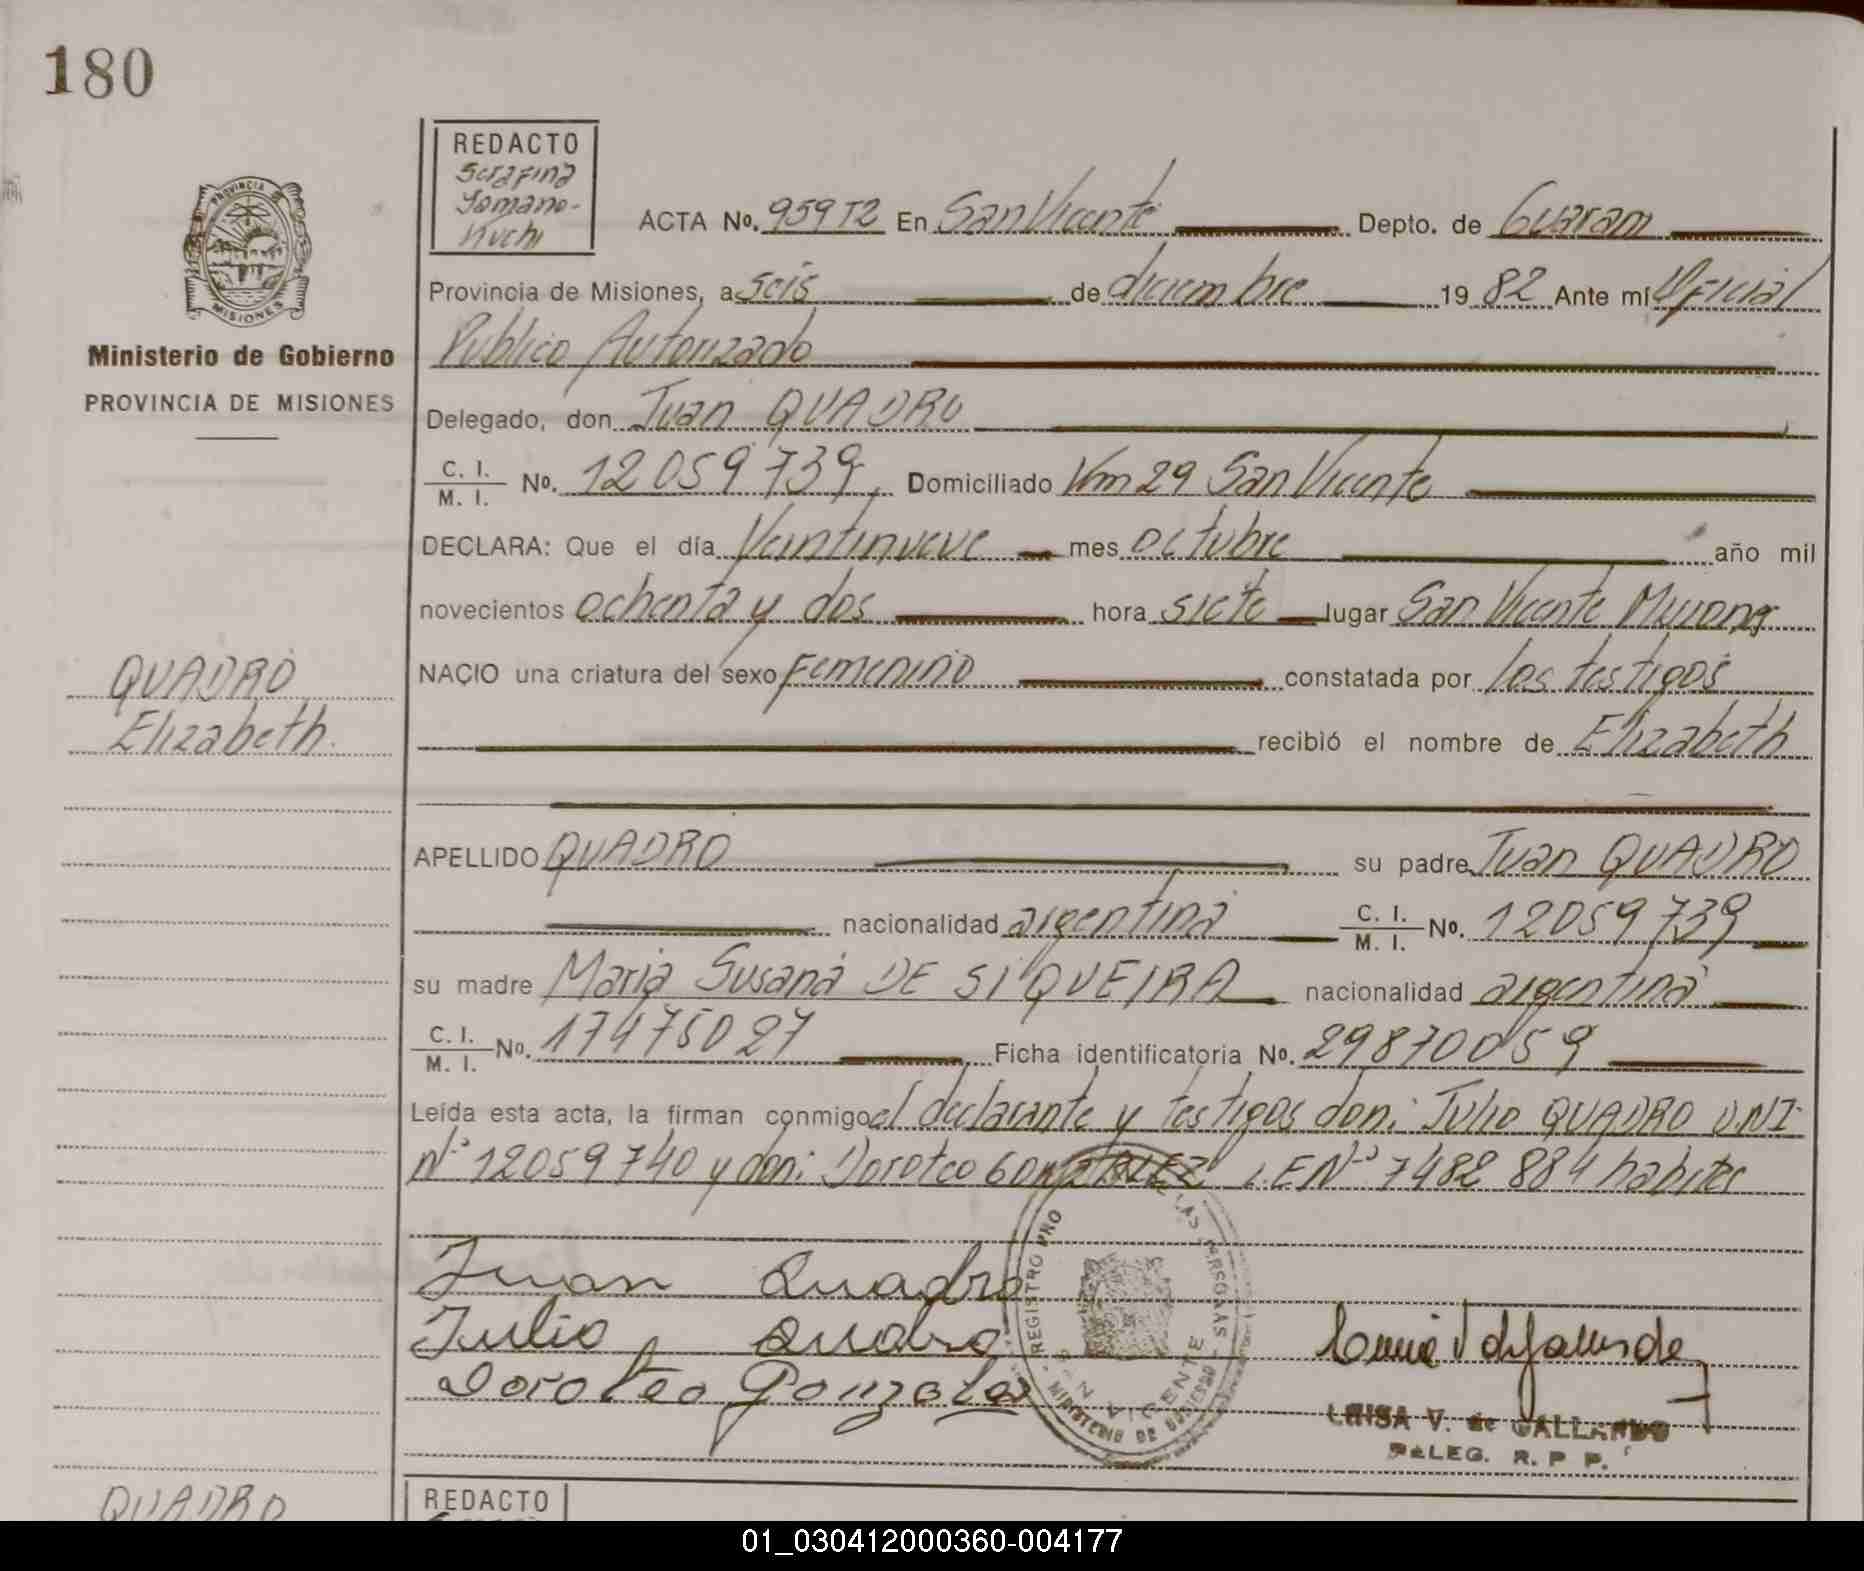 180
REDACTO
Serafina
Yomano-
Kuchi
PROVINCIA
MISIONES
Ministerio de Gobierno
PROVINCIA DE MISIONES
ACTA No. 959T2 En San Vicente Depto. de Guarani
Provincia de Misiones, a seis de diciembre 1982 Ante mí Oficial
Publico Autorizado
Delegado, don Juan QUADRO
C. I. / M. I. No. 12059739, Domiciliado Km 29 San Vicente
DECLARA: Que el día Veintinueve mes octubre año mil
novecientos ochenta y dos hora siete lugar San Vicente Misiones
NACIO una criatura del sexo Femenino constatada por los testigos
recibió el nombre de Elizabeth
QUADRO
Elizabeth.
APELLIDO QUADRO su padre Juan QUADRO
nacionalidad argentina C. I. / M. I. No. 12059739
su madre Maria Susana DE SIQUEIRA nacionalidad argentina
C. I. / M. I. No. 17475027 Ficha identificatoria No. 29870059
Leída esta acta, la firman conmigo el declarante y testigos don: Julio QUADRO D.N.I.
Nº 12059740 y don: Doroteo GONZALEZ L.E Nº 7482 884 habiles
Juan Quadro
Julio Quadro
Doroteo Gonzalez
REGISTRO PRO LAS PERSONAS
SAN VICENTE
MINISTERIO DE GOBIERNO
LUISA V. de GALLARDO
DELEG. R. P P.
QUADRO
REDACTO
01_030412000360-004177